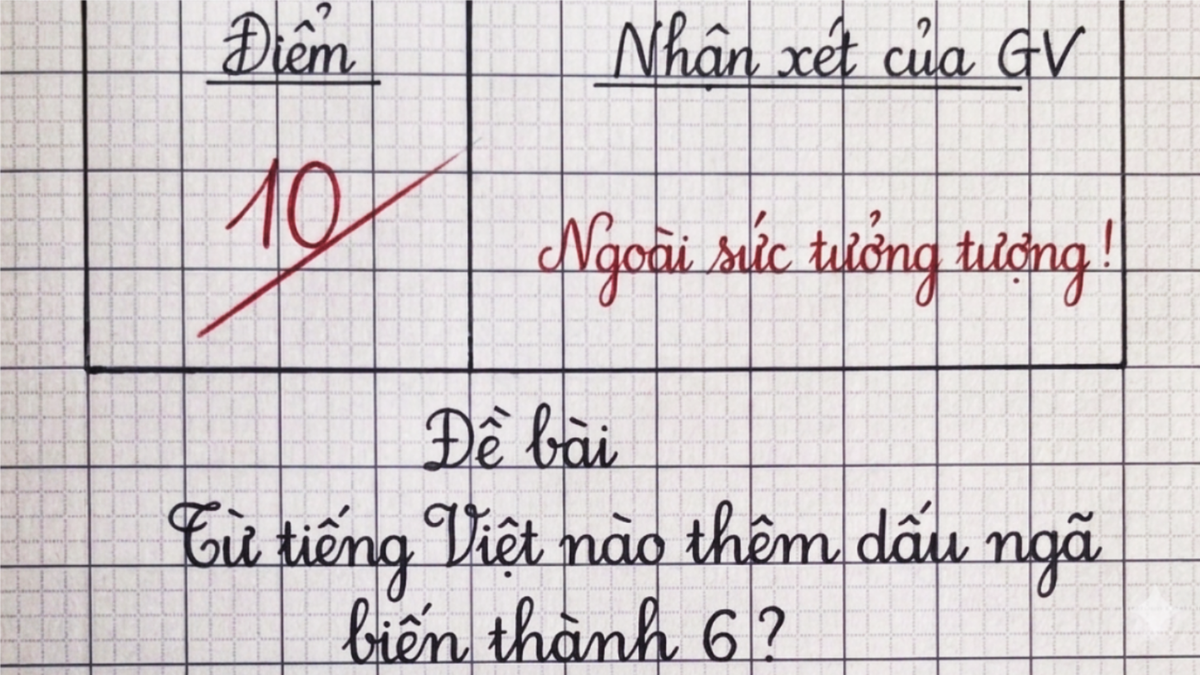 Điểm
Nhận xét của GV
10
Ngoài sức tưởng tượng!
Đề bài
Từ tiếng Việt nào thêm dấu ngã
biến thành 6?